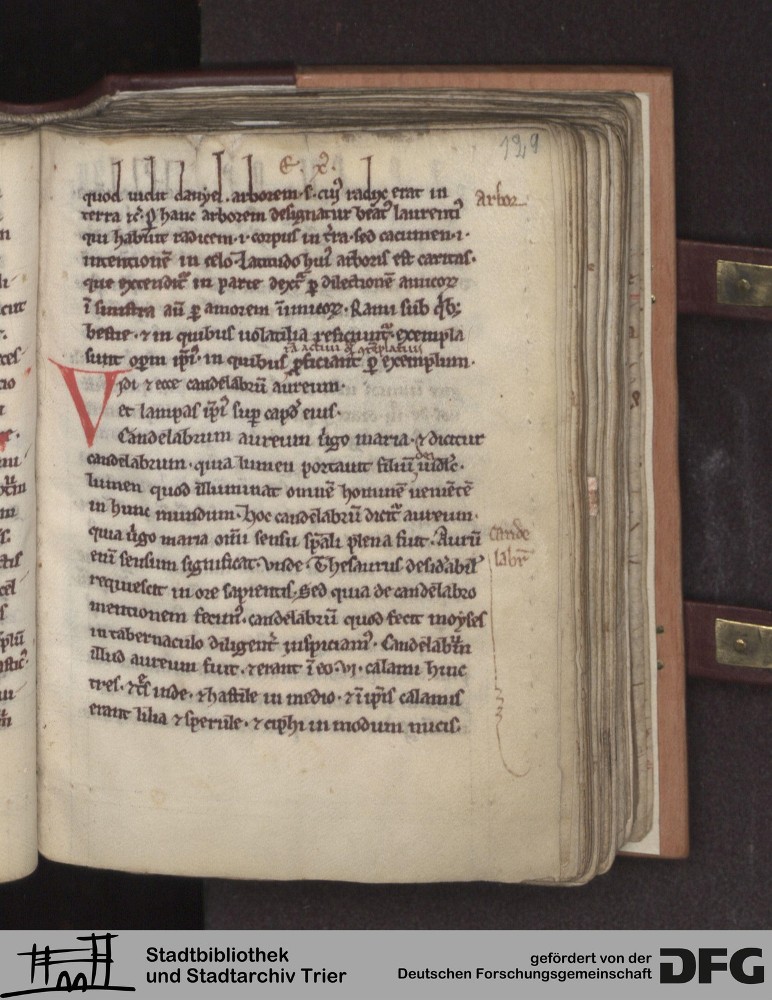 129
quod uidit danyel. arborem .s. cuiꝰ radix erat in
arbor
terra ⁊c̄. ꝑ hanc arborem designatur beatꝰ laurentiꝰ
qui habuit radicem .i. corpus in t̄ra. sed cacumen .i.
intentionē in celo. Latitudo huiꝰ arboris est caritas.
que extendit᷑ in parte dext̄ ꝑ dilectionem amicoꝝ
ī sinistra aū ꝑ amorem īimicoꝝ. Rami sub qͥbꝫ
bestie. ⁊ in quibus uolatilia reficiunt᷑. exempla
sunt oꝑm ip̄iꝰ. in quibus ꝓficiant ꝑ exemplum.
Vidi ⁊ ecce candelabrū aureum.
et lampas ip̄iꝰ suꝑ capd̄ eius.
Candelabrum aureum ūgo maria. ⁊ dicitur
candelabrum. quia lumen portauit filiū dei uidlꝫ.
lumen quod illuminat omnē hominē uenientē
in hunc mundum. hoc candelabrū dicit᷑ aureum.
quia ūgo maria om̄i sensu sp̄ali plena fuit. Aurū
cande
enī sensum significat. Vnde. Thesaurus desid̓abil̓
labr̄
requiescit in ore sapientis. Sed quia de candelabro
mentionem fecimꝰ. candelabrū quod fecit moyses
in tabernaculo diligent᷑ inspiciamꝰ. Candelabrū
illud aureum fuit. ⁊ erant ī eo .vi. calami hinc
tres. ⁊ tͤs inde. ⁊ hastile in medio. ⁊ ī ip̄is calamis
erant lilia ⁊ sperule. ⁊ ciphi in modum nucis.
Stadtbibliothek
und Stadtarchiv Trier
gefördert von der
Deutschen Forschungsgemeinschaft
DFG